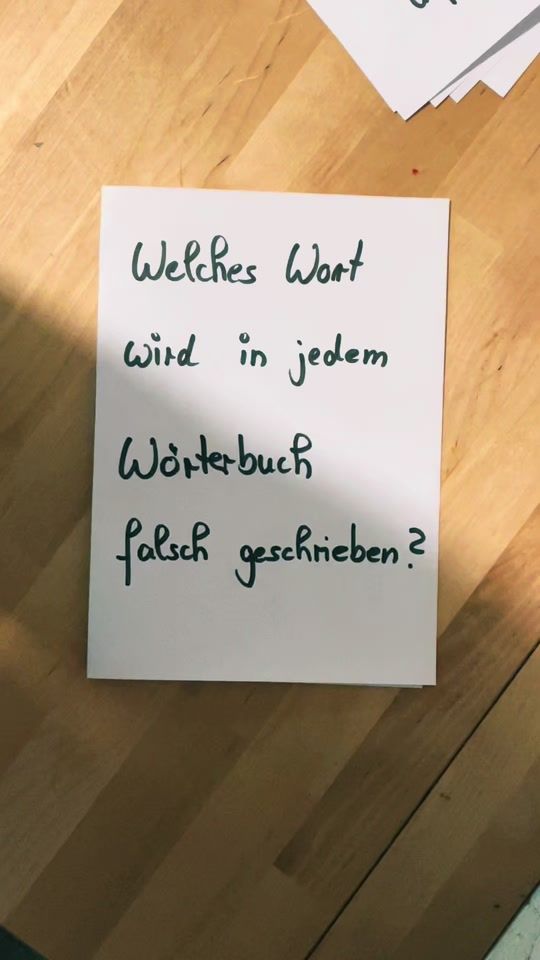 Welches Wort
wird in jedem
Wörterbuch
falsch geschrieben?